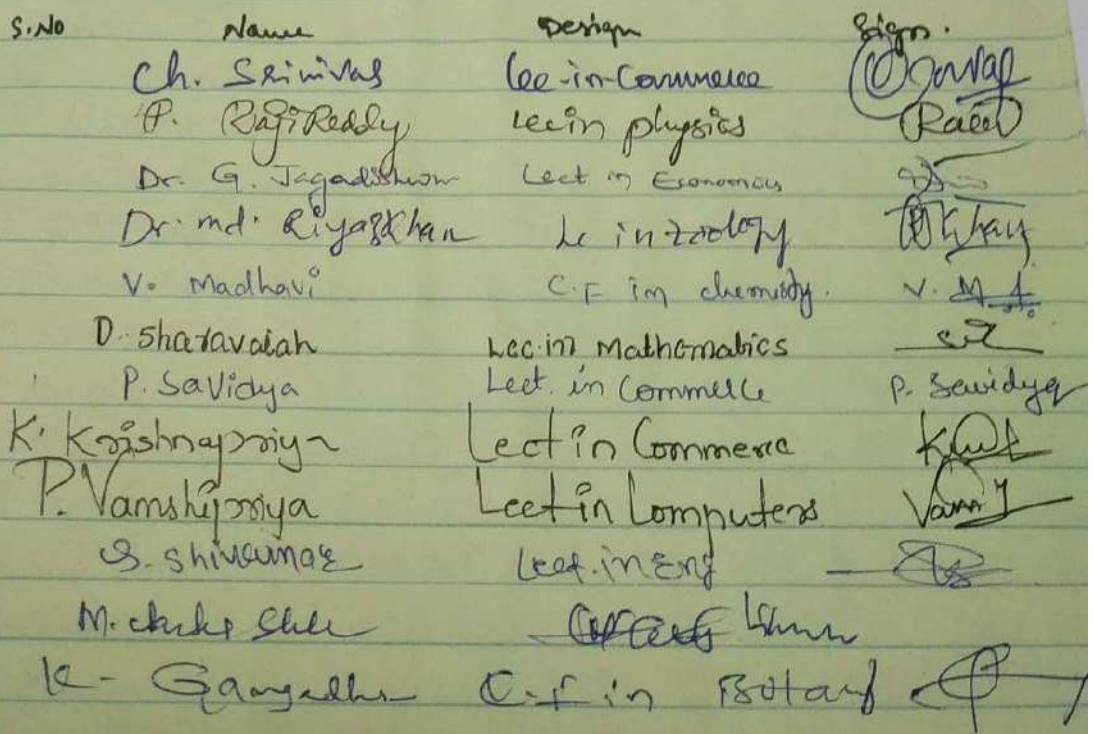 S.No Name Design Sign.
Ch. Srinivas Lec-in-Commerce
P. Raji Reddy Lec in physics
Dr. G. Jagadishwar Lect in Economics
Dr. md. Riyaz Khan Le in zoology Khan
V. Madhavi C.F in chemistry. V. M
D. Sharavaiah Lec.in Mathematics
P. Savidya Lect. in Commerce P. Savidya
K. Krishnapriya Lect in Commerce
P. Vamshipriya Lect in Computers Vamsi
S. Shivakumar Lect. in Eng
M.
K - Gangadhar C.F in Botany